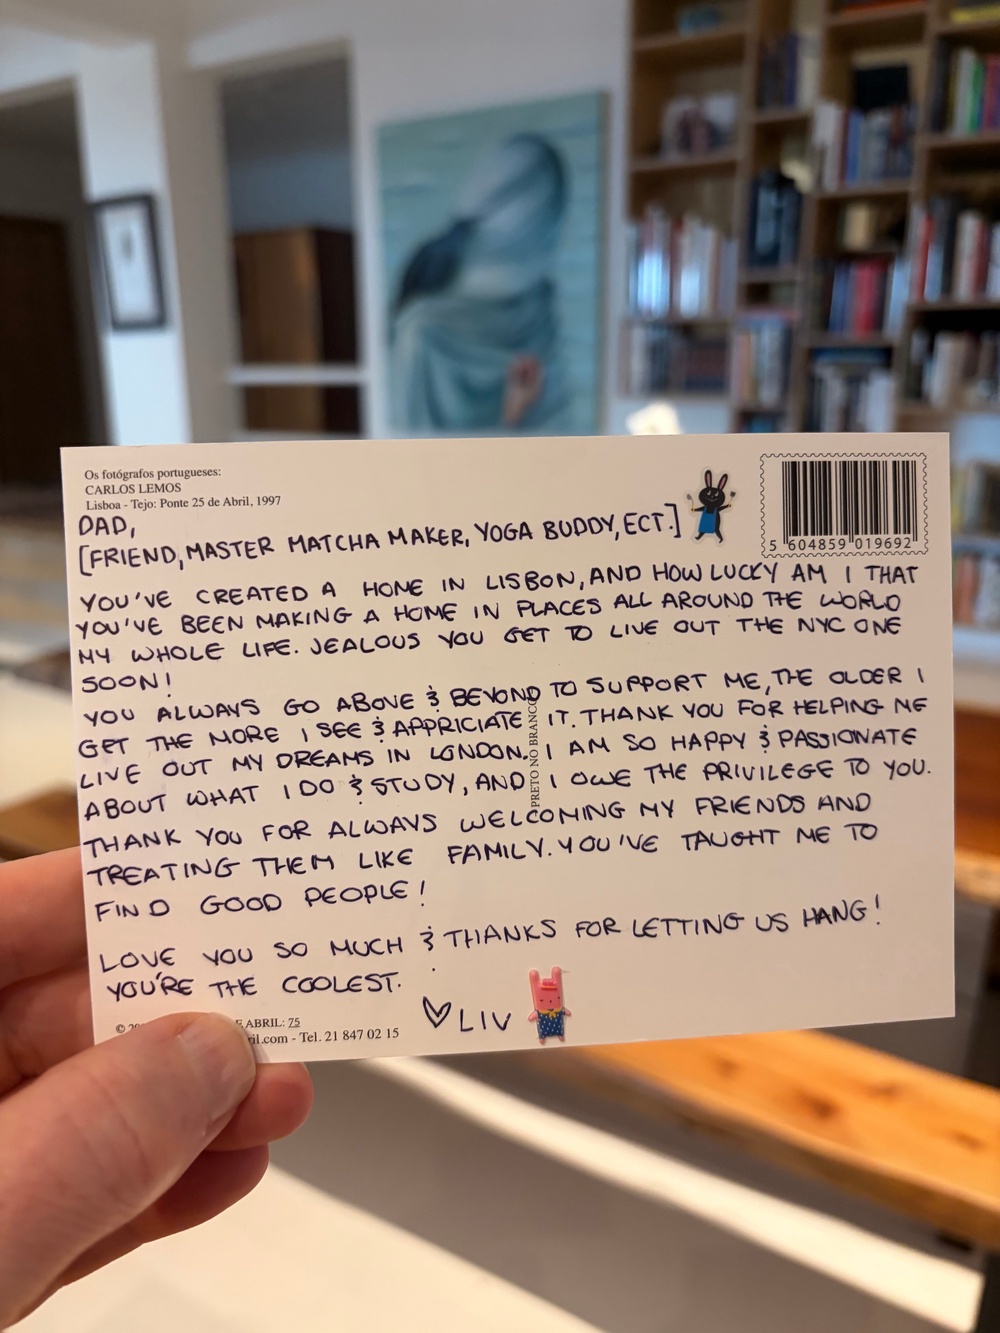 Os fotógrafos portugueses:
CARLOS LEMOS
Lisboa - Tejo: Ponte 25 de Abril, 1997
5 604859 019692
DAD,
[FRIEND, MASTER MATCHA MAKER, YOGA BUDDY, ECT.]
YOU'VE CREATED A HOME IN LISBON, AND HOW LUCKY AM I THAT
YOU'VE BEEN MAKING A HOME IN PLACES ALL AROUND THE WORLD
MY WHOLE LIFE. JEALOUS YOU GET TO LIVE OUT THE NYC ONE
SOON!
YOU ALWAYS GO ABOVE & BEYOND TO SUPPORT ME, THE OLDER I
GET THE MORE I SEE & APPRICIATE IT. THANK YOU FOR HELPING ME
LIVE OUT MY DREAMS IN LONDON. I AM SO HAPPY & PASSIONATE
ABOUT WHAT I DO & STUDY, AND I OWE THE PRIVILEGE TO YOU.
THANK YOU FOR ALWAYS WELCOMING MY FRIENDS AND
TREATING THEM LIKE FAMILY. YOU'VE TAUGHT ME TO
FIND GOOD PEOPLE!
LOVE YOU SO MUCH & THANKS FOR LETTING US HANG!
YOU'RE THE COOLEST.
♡ LIV
PRETO NO BRANCO
© ABRIL: 75
.com - Tel. 21 847 02 15